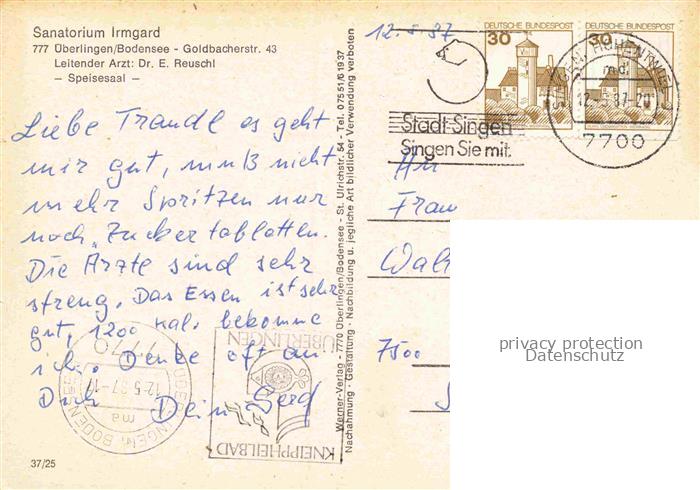 Sanatorium Irmgard
777 Überlingen/Bodensee - Goldbacherstr. 43
Leitender Arzt: Dr. E. Reuschl
— Speisesaal —
Liebe Traudl es geht
mir gut, muß nicht
mehr Spritzen nur
noch Zuckertabletten.
Die Ärzte sind sehr
streng. Das Essen ist sehr
gut, 1200 Kal. bekomme
ich. Denke oft an
Dich Dein Gerd
37/25
Werner-Verlag - 7770 Überlingen/Bodensee - St. Ulrichstr. 54 - Tel. 07551/61937
Nachahmung - Gestaltung - Nachbildung u. jegliche Art bildlicher Verwendung verboten
12.5.87
DEUTSCHE BUNDESPOST
30
DEUTSCHE BUNDESPOST
30
Stadt Singen
Singen Sie mit.
SINGEN, HOHENTWIEL
md
12.-5.87-20
7700
Frau
7500
ÜBERLINGEN, BODENSEE
ma
12.-5.87-1
7770
ÜBERLINGEN
KNEIPPHEILBAD
privacy protection
Datenschutz